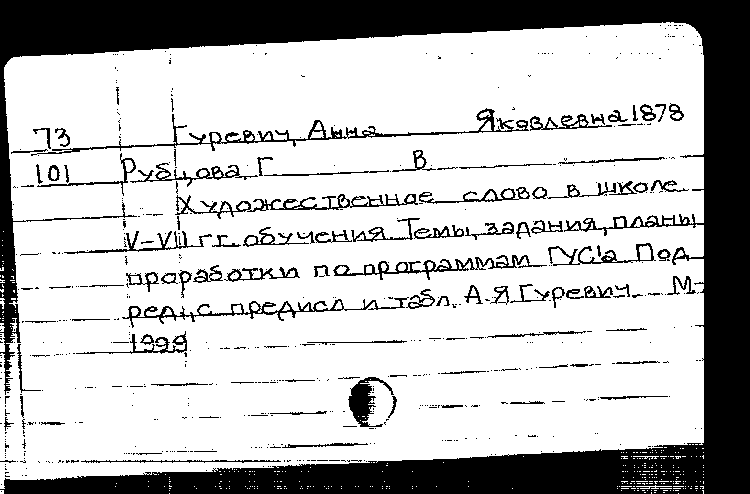 73 Гуревич, Анна Яковлевна 1878
101 Рубцова, Г. В
Художественное слово в школе
V-VII г.г. обучения. Темы, задания, планы
проработки по программам ГУС'а Под
ред., с предисл и табл. А.Я Гуревич. М-